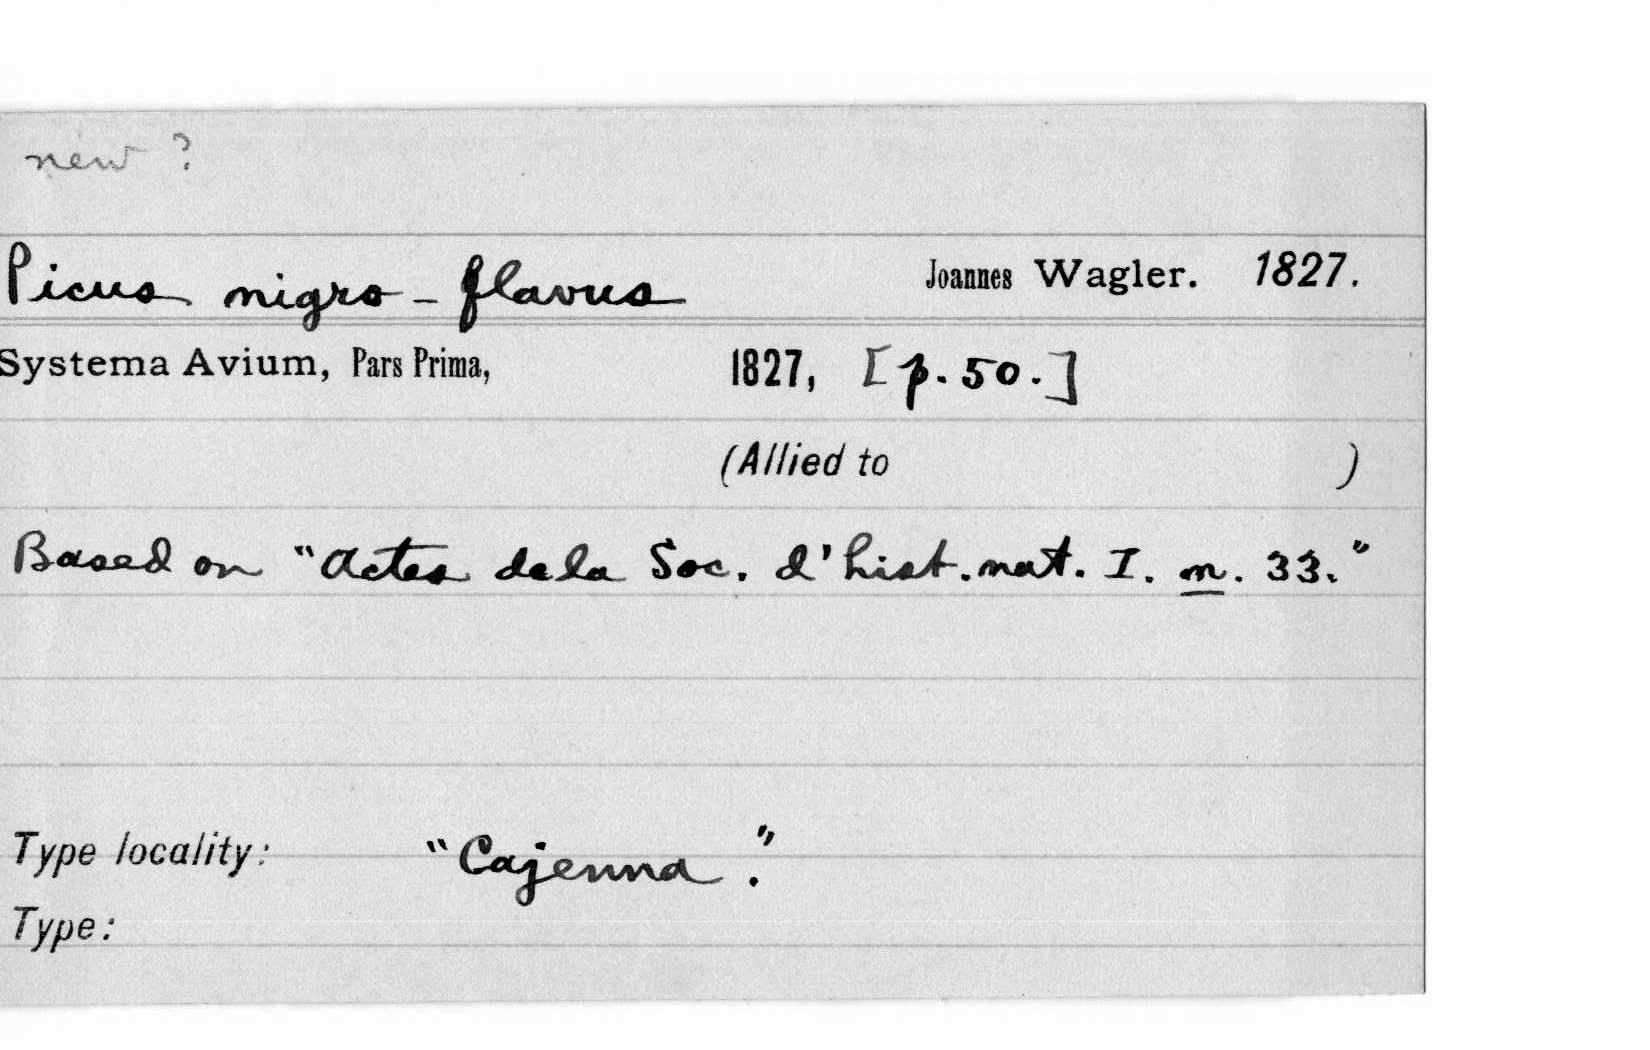 new ?
Picus nigro-flavus Joannes Wagler. 1827.
Systema Avium, Pars Prima, 1827, [p. 50.]
(Allied to )
Based on "Actes de la Soc. d'hist. nat. I. m. 33."
Type locality: "Cajenna".
Type: